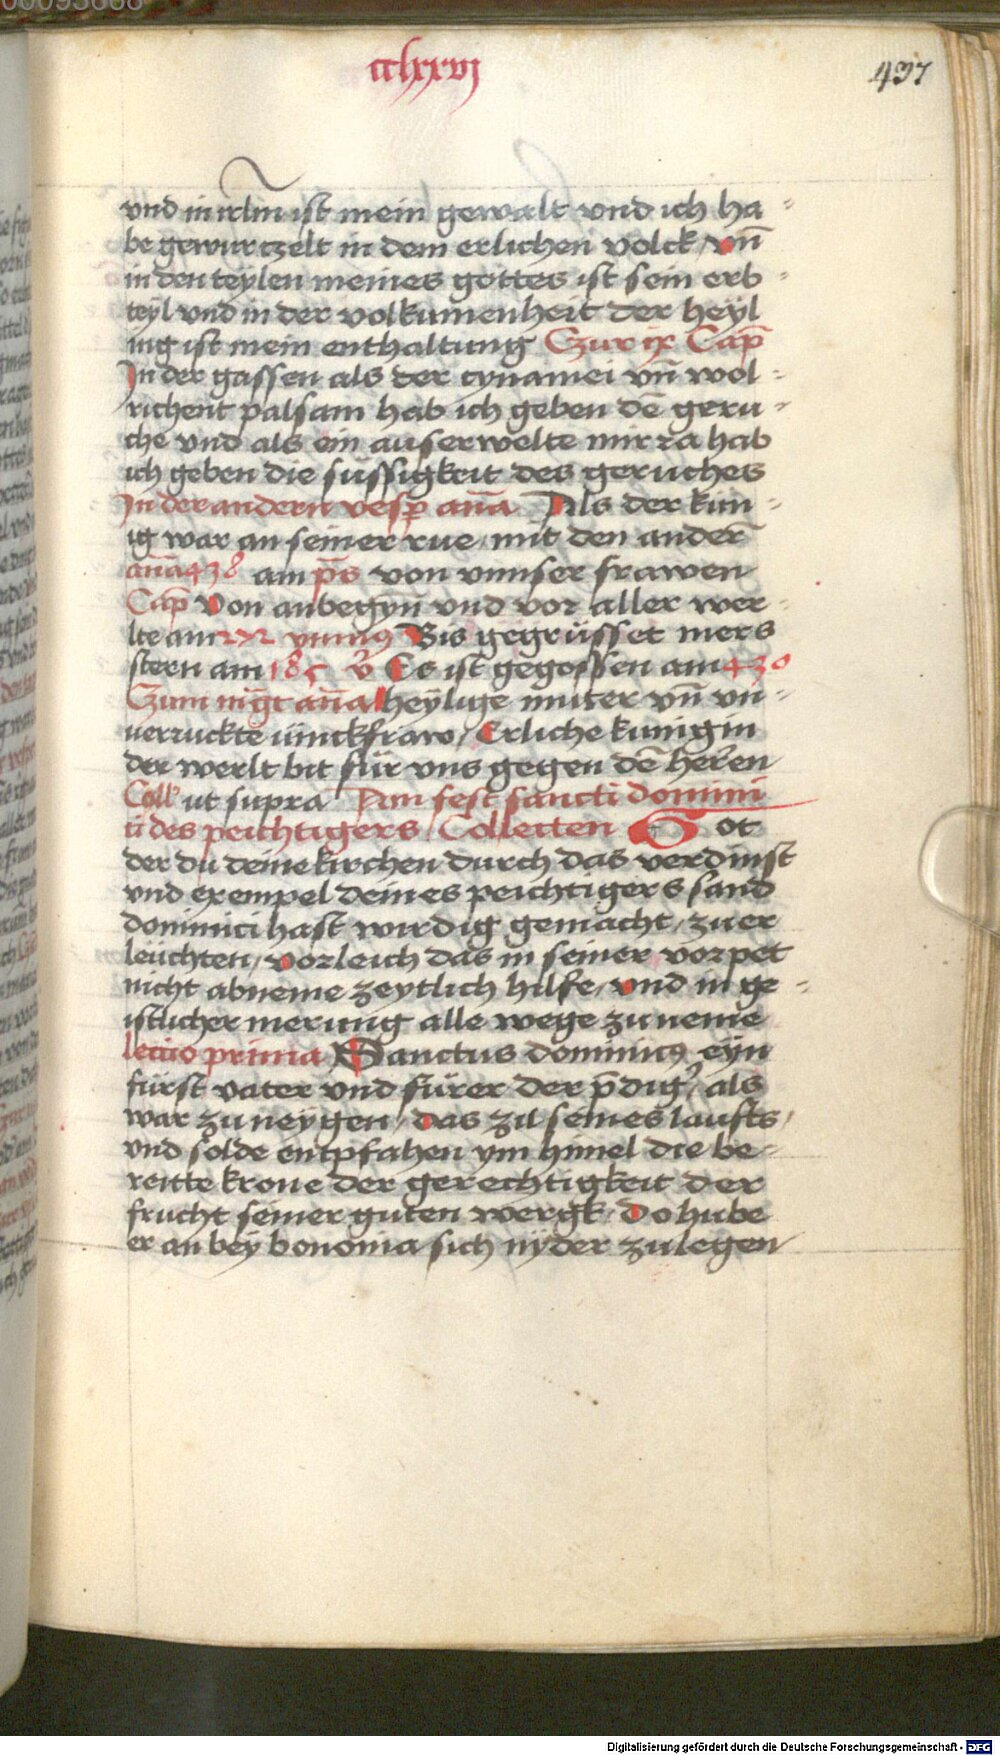 00093668
cclxxvj
437
vnd in irlm̄ ist mein gewalt vnd ich ha-
be gewurczelt in dem erlichen volck / vn̄
in den teylen meines gottes ist sein erb-
teyl vnd in der volkumenheit der heyl
ing ist mein enthaltung Czur ix Cap̄
In der gassen als der cynamei vn̄ wol-
richent palsam hab ich geben dē geru-
che vnd als ein auserwelte mirra hab
ich geben die süssigkeit des geruches
In der andern vesp̄ an̄a Als der kun-
ig war an seiner rue / mit den andern̄
an̄a 438 am p̄s von vnnser frawen
Cap̄ Von anbegyn̄ vnd vor aller wer-
lte am 272 ymnus Bis gegrüsset mers
stern am 185 v̄ Es ist gegossen am 430
Czum mḡt an̄a heylige muter vn̄ vn-
uerruckte iunckfraw / Erliche kunigin
der werlt bit für vns gegen dē herren
Coll' ut supra An sest sancti domini
ci des peichtigers / Collecten Got
der du deine kirchen durch das verdinst
vnd exempel deines peichtigers sand
dominici hast wirdig gemacht / zu er
leüchten / vorleich das in seiner vorpet
nicht abneme zeytlich hilfe / vnd in ge-
istlicher merung alle wege zu neme
lectio prima Sanctus dominicus eyn
fürst vater vnd fürer der p̄dig' / als
war zu neygen / das zil seines laufts /
vnd solde entpfahen ym himel die be-
reitte krone der gerechtigkeit der
frucht seiner guten wergk / Do hube
er an bey bononia sich nyder zu legen
Digitalisierung gefördert durch die Deutsche Forschungsgemeinschaft - DFG